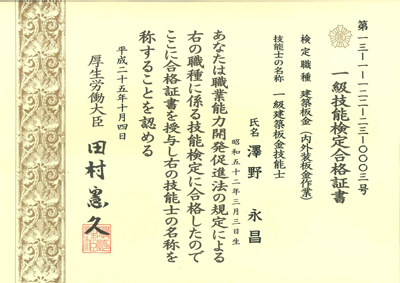 第一三-一-一二二-二三-〇〇〇三号
一級技能検定合格証書
検定職種 建築板金（内外装板金作業）
技能士の名称 一級建築板金技能士
氏名 澤野 永昌
昭和五十二年三月三日生
あなたは職業能力開発促進法の規定による
右の職種に係る技能検定に合格したので
ここに合格証書を授与し右の技能士の名称を
称することを認める
平成二十五年十月四日
厚生労働大臣 田村憲久